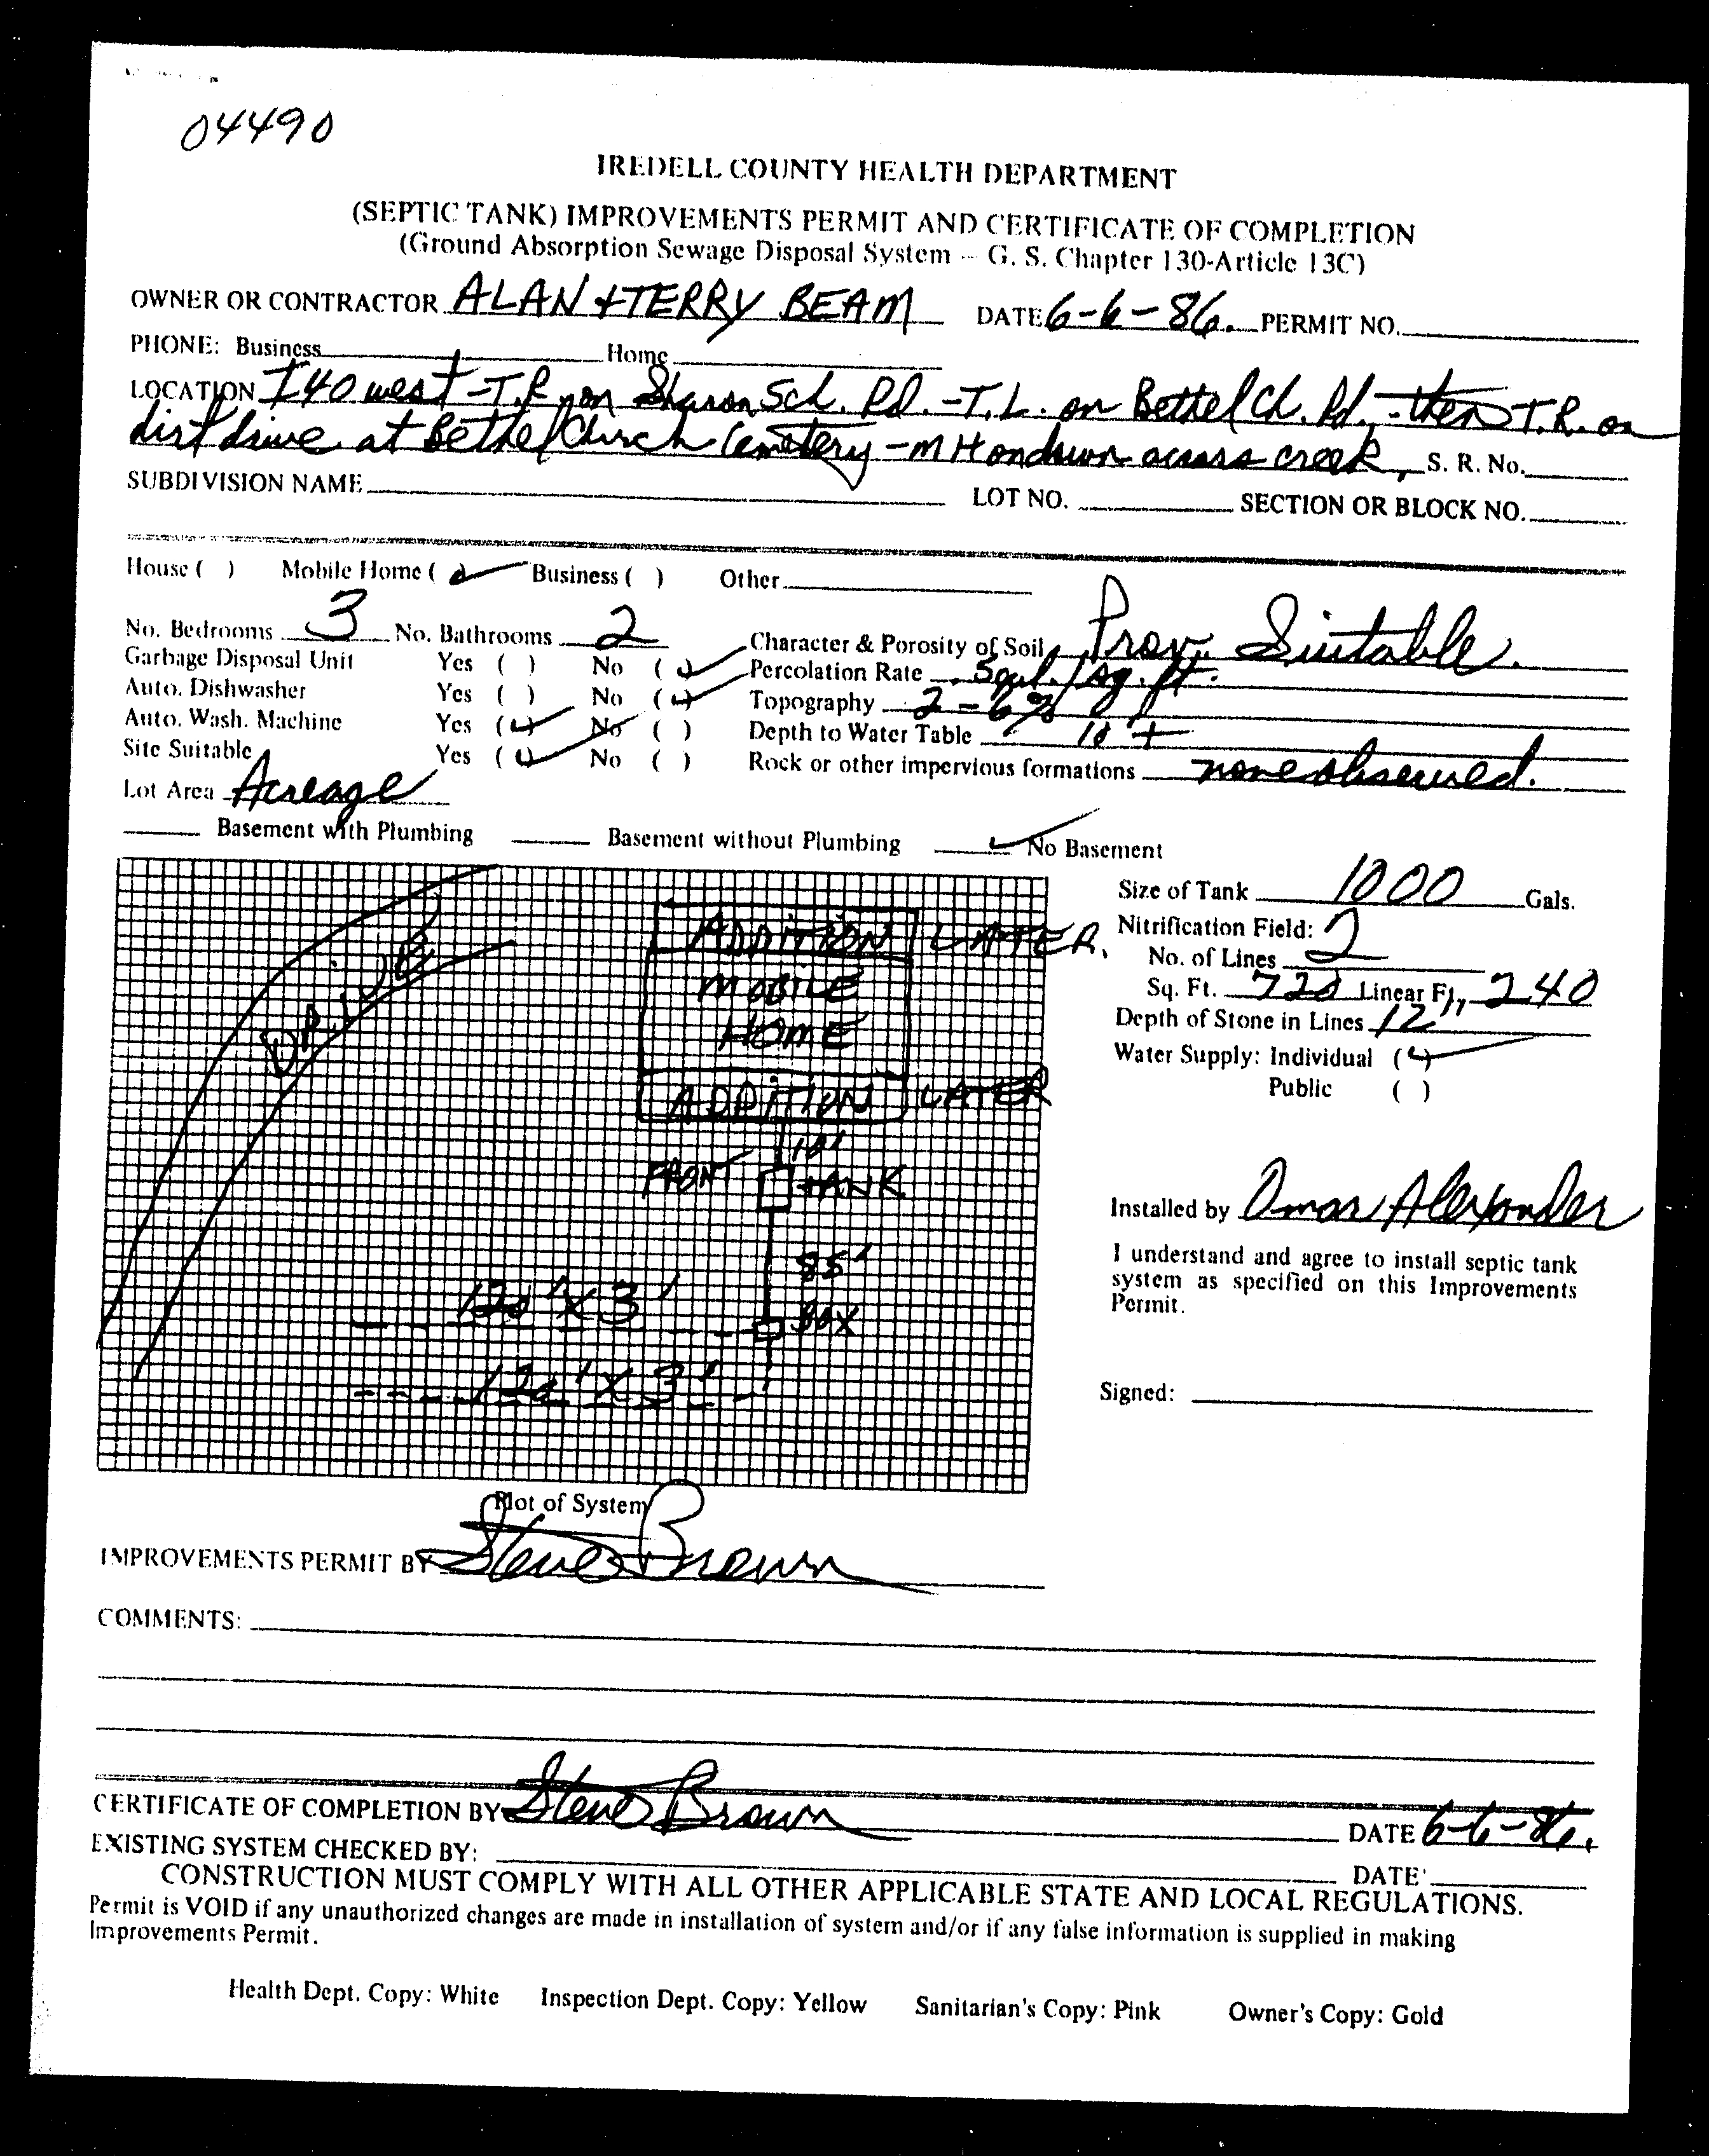 04490
IREDELL COUNTY HEALTH DEPARTMENT
(SEPTIC TANK) IMPROVEMENTS PERMIT AND CERTIFICATE OF COMPLETION
(Ground Absorption Sewage Disposal System -- G. S. Chapter 130-Article 13C)
OWNER OR CONTRACTOR ALAN + TERRY BEAM DATE 6-6-86. PERMIT NO.
PHONE: Business Home
LOCATION I40 west - T.R. on Sharon Sch. Rd. - T.L. on Bethel Ch. Rd. - then T.R. on
dirt drive at Bethel Church Cemetery - MH on down across creek, S. R. No.
SUBDIVISION NAME LOT NO. SECTION OR BLOCK NO.
House ( ) Mobile Home (✓) Business ( ) Other
No. Bedrooms 3 No. Bathrooms 2 Character & Porosity of Soil Prov. Suitable.
Garbage Disposal Unit Yes ( ) No (✓) Percolation Rate .5gal./sq. ft.
Auto. Dishwasher Yes ( ) No (✓) Topography 2-6%
Auto. Wash. Machine Yes (✓) No ( ) Depth to Water Table 10'+
Site Suitable Yes (✓) No ( ) Rock or other impervious formations none observed.
Lot Area Acreage
Basement with Plumbing Basement without Plumbing ✓ No Basement
Size of Tank 1000 Gals.
Nitrification Field:
No. of Lines 2
Sq. Ft. 720 Linear Ft. 240
Depth of Stone in Lines 12"
Water Supply: Individual (✓)
Public ( )
ADDITION LATER.
MOBILE
HOME
DRIVE
ADDITION LATER
10'
FRONT TANK
85'
120' X 3' BOX
120' X 3'
Installed by Omar Alexander
I understand and agree to install septic tank
system as specified on this Improvements
Permit.
Signed:
Plot of System
IMPROVEMENTS PERMIT BY Steve Brown
COMMENTS:
CERTIFICATE OF COMPLETION BY Steve Brown DATE 6-6-86.
EXISTING SYSTEM CHECKED BY: DATE
CONSTRUCTION MUST COMPLY WITH ALL OTHER APPLICABLE STATE AND LOCAL REGULATIONS.
Permit is VOID if any unauthorized changes are made in installation of system and/or if any false information is supplied in making
Improvements Permit.
Health Dept. Copy: White Inspection Dept. Copy: Yellow Sanitarian's Copy: Pink Owner's Copy: Gold